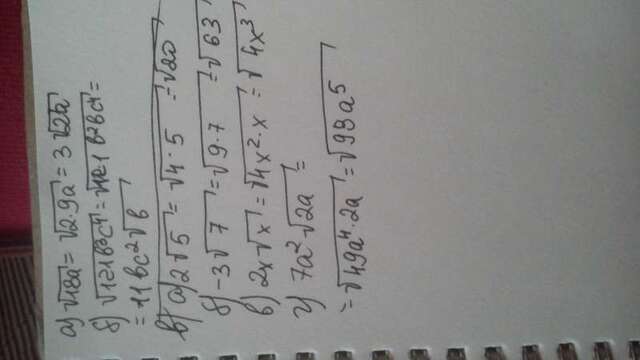 а) √18a = √2·9a = 3√2a
б) √121b³c⁴ = √121 b²bc⁴ =
= 11bc²√b
в) а) 2√5 = √4·5 = √20
б) -3√7 = √9·7 = √63
в) 2x√x = √4x²·x = √4x³
г) 7a²√2a =
= √49a⁴·2a = √98a⁵